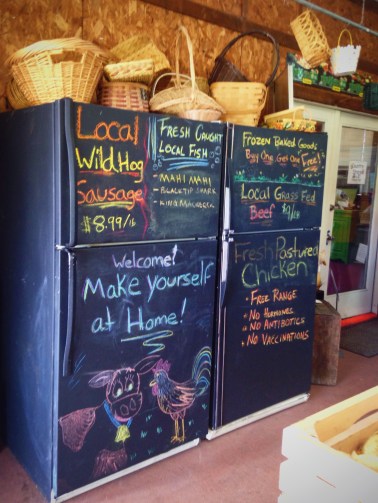 Local
Wild Hog
Sausage
$8.99/lb
Fresh Caught
Local Fish
- Mahi Mahi
- Blacktip Shark
- King Mackerel
Frozen Baked Goods
Buy One Get One Free!
Local Grass Fed
Beef $9/lb
Welcome!
Make yourself
at Home!
Fresh Pastured
Chicken
• Free Range
• No Hormones
• No Antibiotics
• No Vaccinations